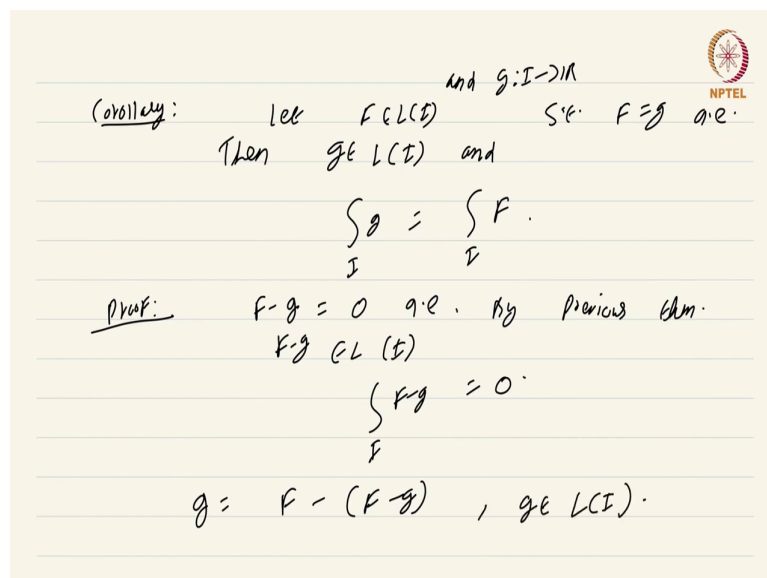 and g: I→ℝ
Corollary: Let F ∈ L(I) s.t. F = g a.e.
Then g ∈ L(I) and
∫_I g = ∫_I F.
Proof: F-g = 0 a.e. By previous thm.
F-g ∈ L(I)
∫_I F-g = 0.
g = F - (F-g), g ∈ L(I).
NPTEL